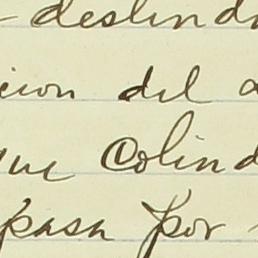 - deslind
cion del a
que Colind
pasa por